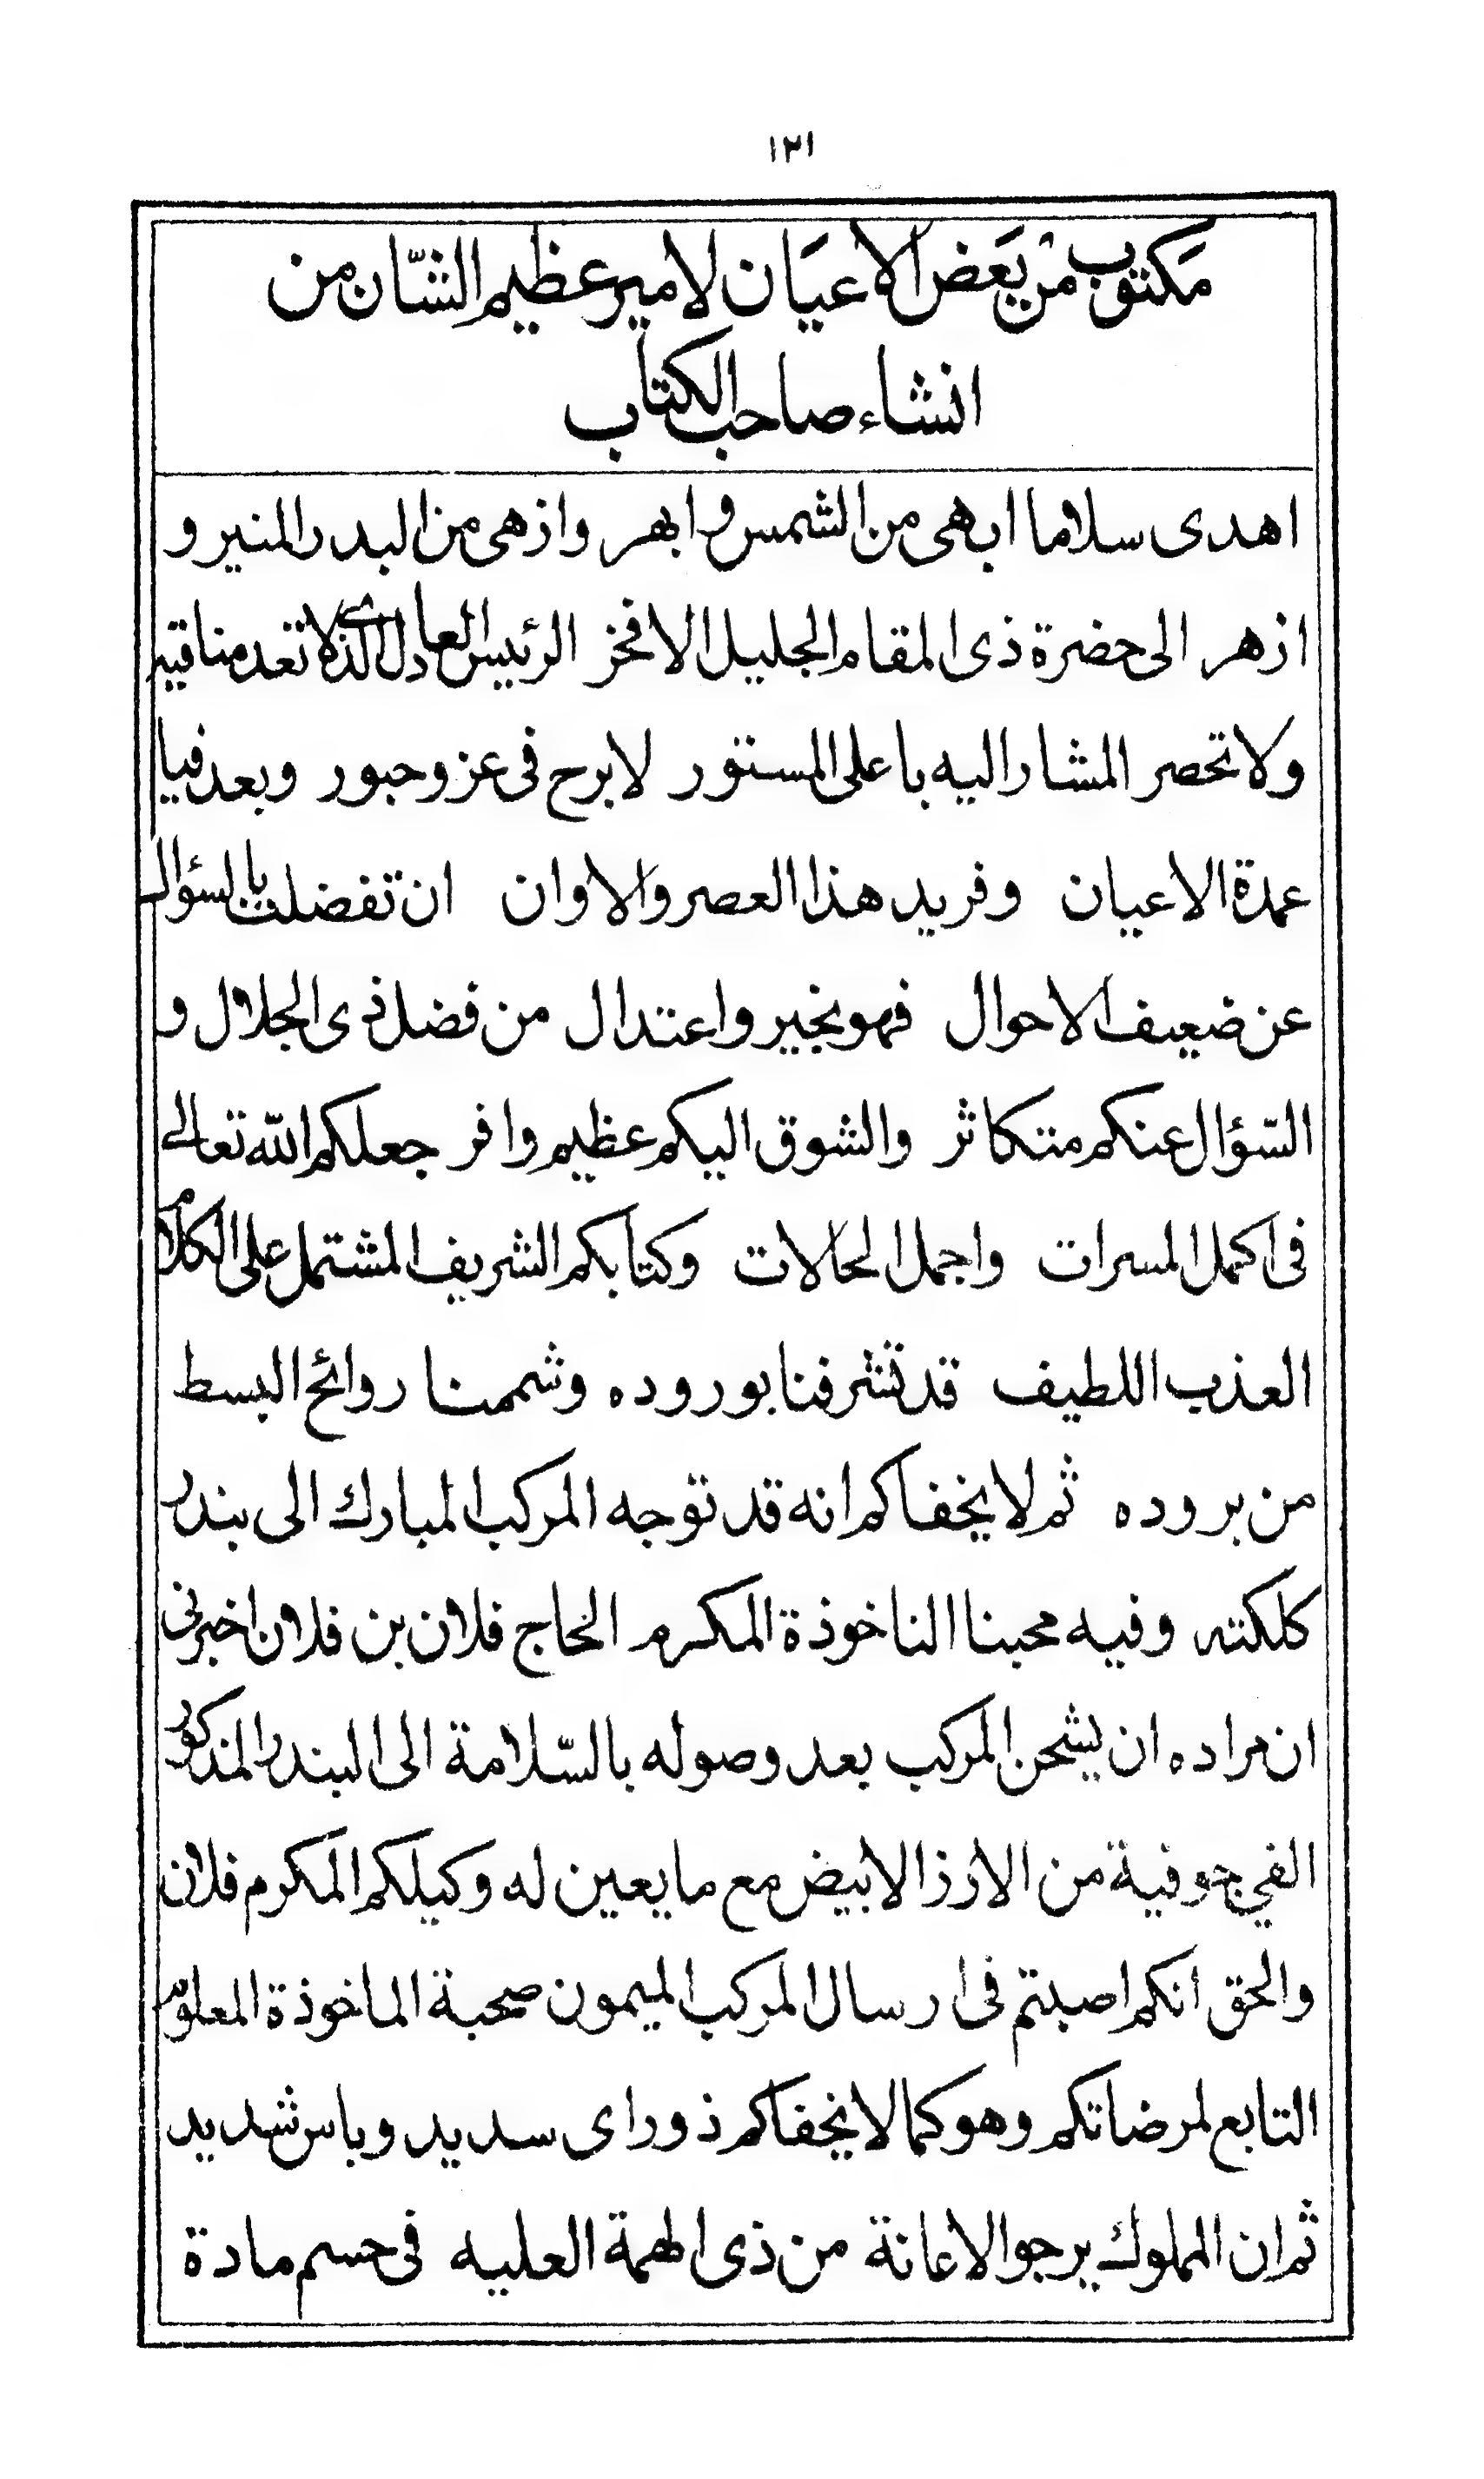 ١٢١
مَكتوب من بَعَض الاعيَان لامير عظيم الشّان من
انشاء صاحب الكتاب
اهدى سلاما ابهى من الشمس و ابهر وازهى من البدر المنير و
ازهر الى حضرة ذى المقام الجليل الافخر الرئيس العادل الذى لا تعد مناقبه
ولا تحصر المشار اليه باعلى المستور لا برح فى عز وحبور وبعد فيا
عمدة الاعيان وفريد هذا العصر والاوان ان تفضلت بالسؤال
عن ضعيف الاحوال فهو بخير واعتدال من فضل ذى الجلال و
السّؤال عنكم متكاثر والشوق اليكم عظيم وافر جعلكم الله تعالى
فى اكمل المسرات واجمل الحالات وكتابكم الشريف المشتمل على الكلام
العذب اللطيف قد تشرفنا بوروده وشممنا روائح البسط
من بروده ثم لا يخفاكم انه قد توجه المركب المبارك الى بندر
كلكته وفيه محبنا الناخوذة المكرم الحاج فلان بن فلان اخبرنى
ان مراده ان يشحن المركب بعد وصوله بالسّلامة الى البندر المذكور
الفي جوفية من الارز الابيض مع ما يعين له وكيلكم المكرم فلان
والحق انكم اصبتم فى ارسال المركب الميمون صحبة الماخوذة المعلوم
التابع لمرضاتكم وهو كما لا يخفاكم ذو راى سديد وباس شديد
ثم ان المملوك يرجو الاعانة من ذى الهمة العليه فى حسم مادة